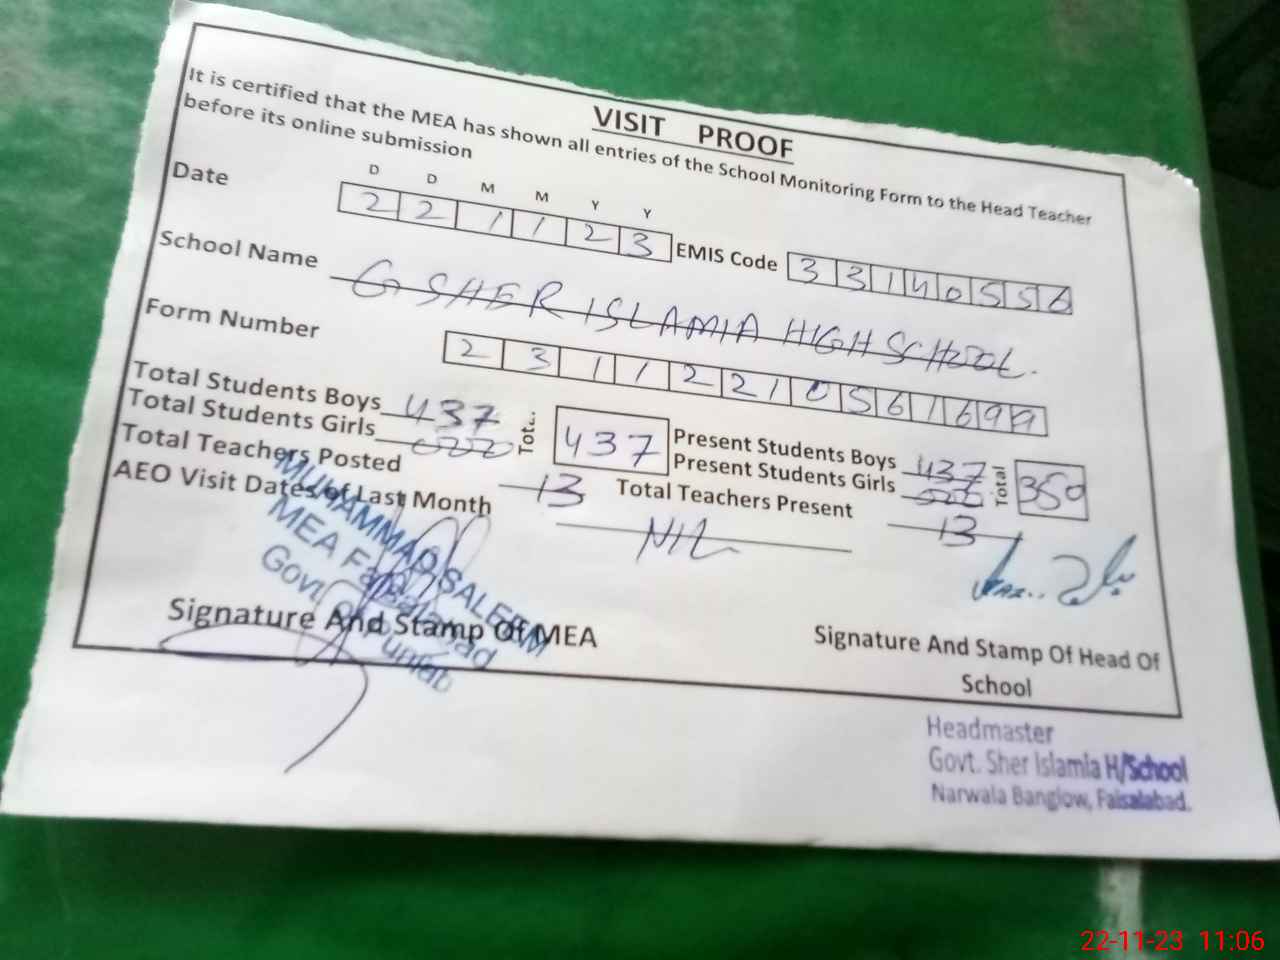 VISIT PROOF
It is certified that the MEA has shown all entries of the School Monitoring Form to the Head Teacher
before its online submission
D D M M Y Y
Date 2 2 1 1 2 3 EMIS Code 3 3 1 4 0 5 5 6
School Name G SHER ISLAMIA HIGH SCHOOL.
Form Number 2 3 1 1 2 2 1 0 5 6 1 6 9 9
Total Students Boys 437 Tot.. 437 Present Students Boys 437 Total 350
Total Students Girls 000 Present Students Girls 000
Total Teachers Posted 13 Total Teachers Present 13
AEO Visit Dates of Last Month NIL
MUHAMMAD SALEEM
MEA Faisalabad
Govt of
Signature And Stamp Of MEA
Signature And Stamp Of Head Of
School
Headmaster
Govt. Sher Islamia H/School
Narwala Banglow, Faisalabad.
22-11-23 11:06